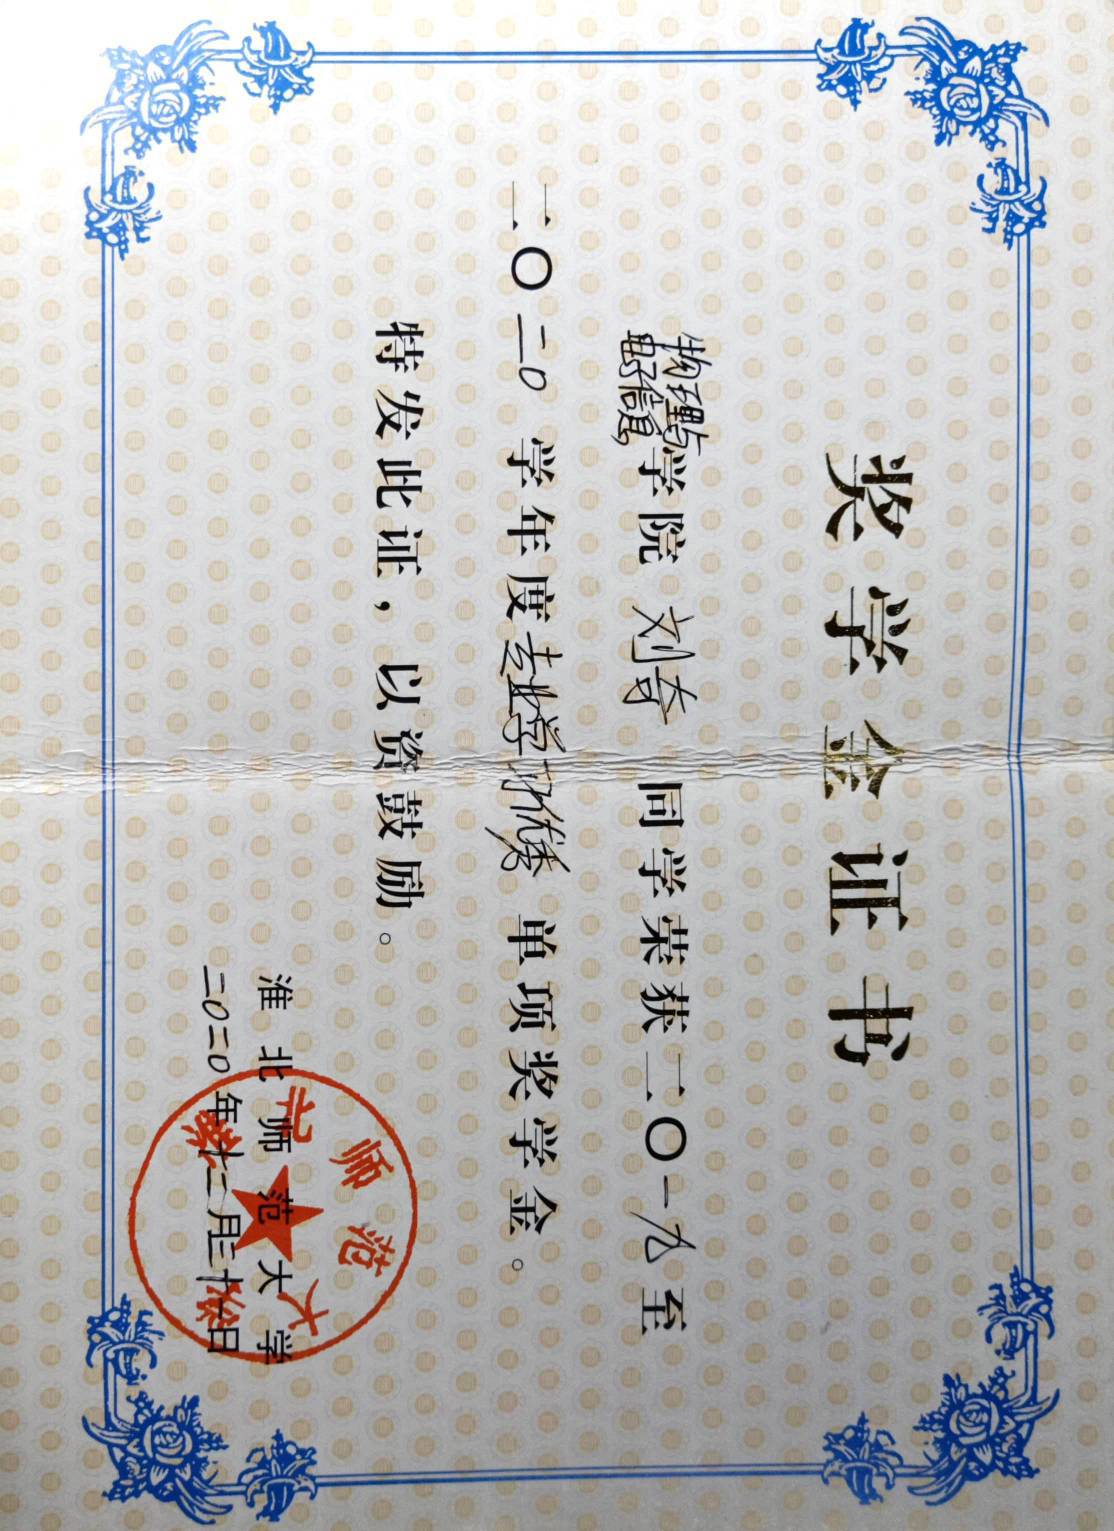 奖学金证书
物理与
电子信息学院 刘奇 同学荣获二〇一九至
二〇二0 学年度专业学习优秀 单项奖学金。
特发此证，以资鼓励。
淮北师范大学
二0二0年十二月三十一日
淮北师范大学